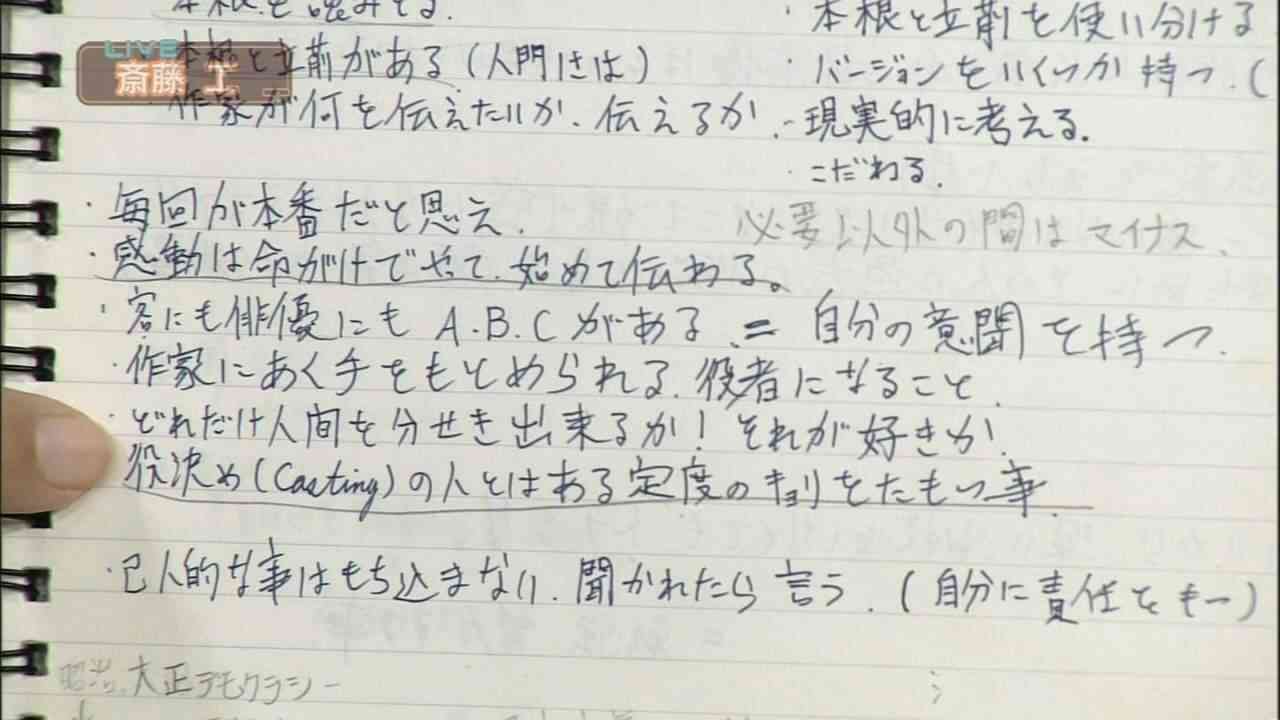 LIVE
斎藤 工
本根と立前を使い分ける
本根と立前がある (人間には)
・バージョンをいくつか持つ. (
・作家が何を伝えたいか. 伝えるか.
・現実的に考える.
・こだわる.
・毎回が本番だと思え.
必要以外の間はマイナス.
・感動は命がけでやって. 始めて伝わる。
・客にも俳優にも A.B.C がある. = 自分の意聞を持つ.
・作家にあく手をもとめられる. 役者になること.
・どれだけ人間を分せき出来るか! それが好きか.
役決め (Casting) の人とはある定度のキョリをたもつ事.
・己人的な事はもち込まない. 聞かれたら言う. (自分に責任をもつ)
明治. 大正デモクラシー